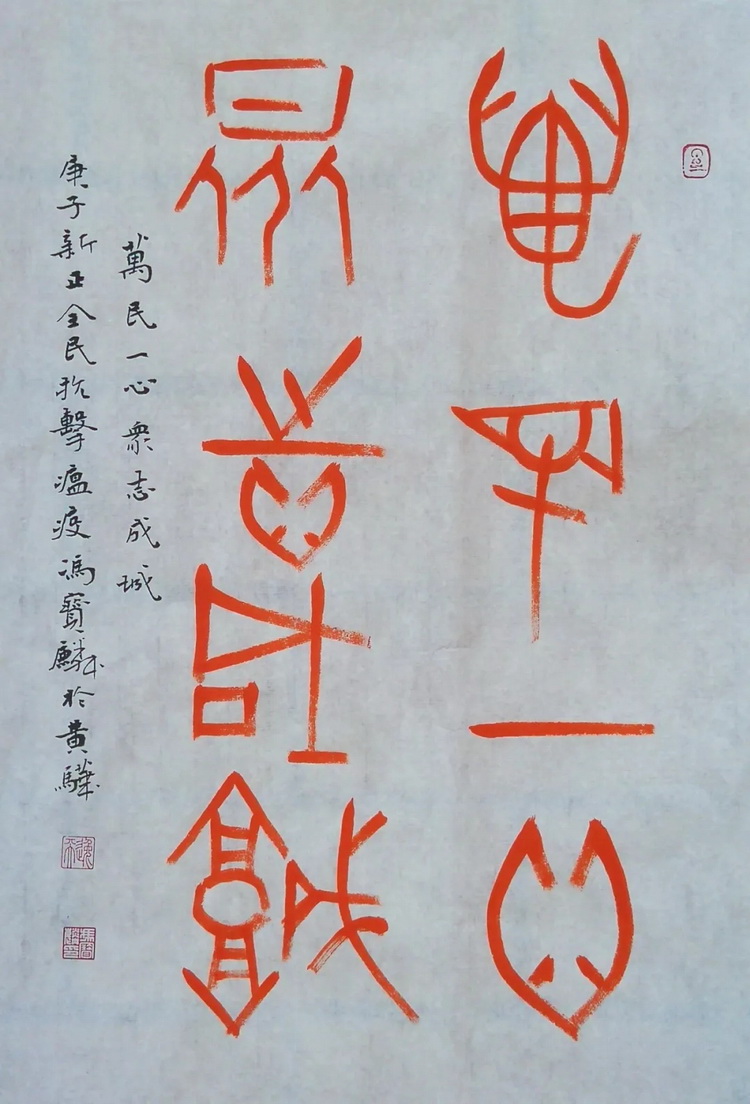 萬民一心
衆志成城
萬民一心衆志成城
庚子新正全民抗擊瘟疫馮寳麟於黃驊